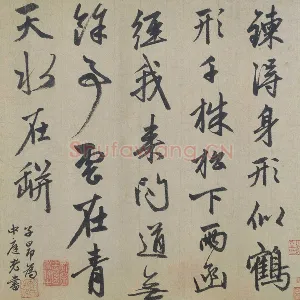 鍊得身形似鶴
形千株松下兩函
經我來問道無
餘事雲在青
天水在缾
子昂為
中庭老書
Shufawang.CN